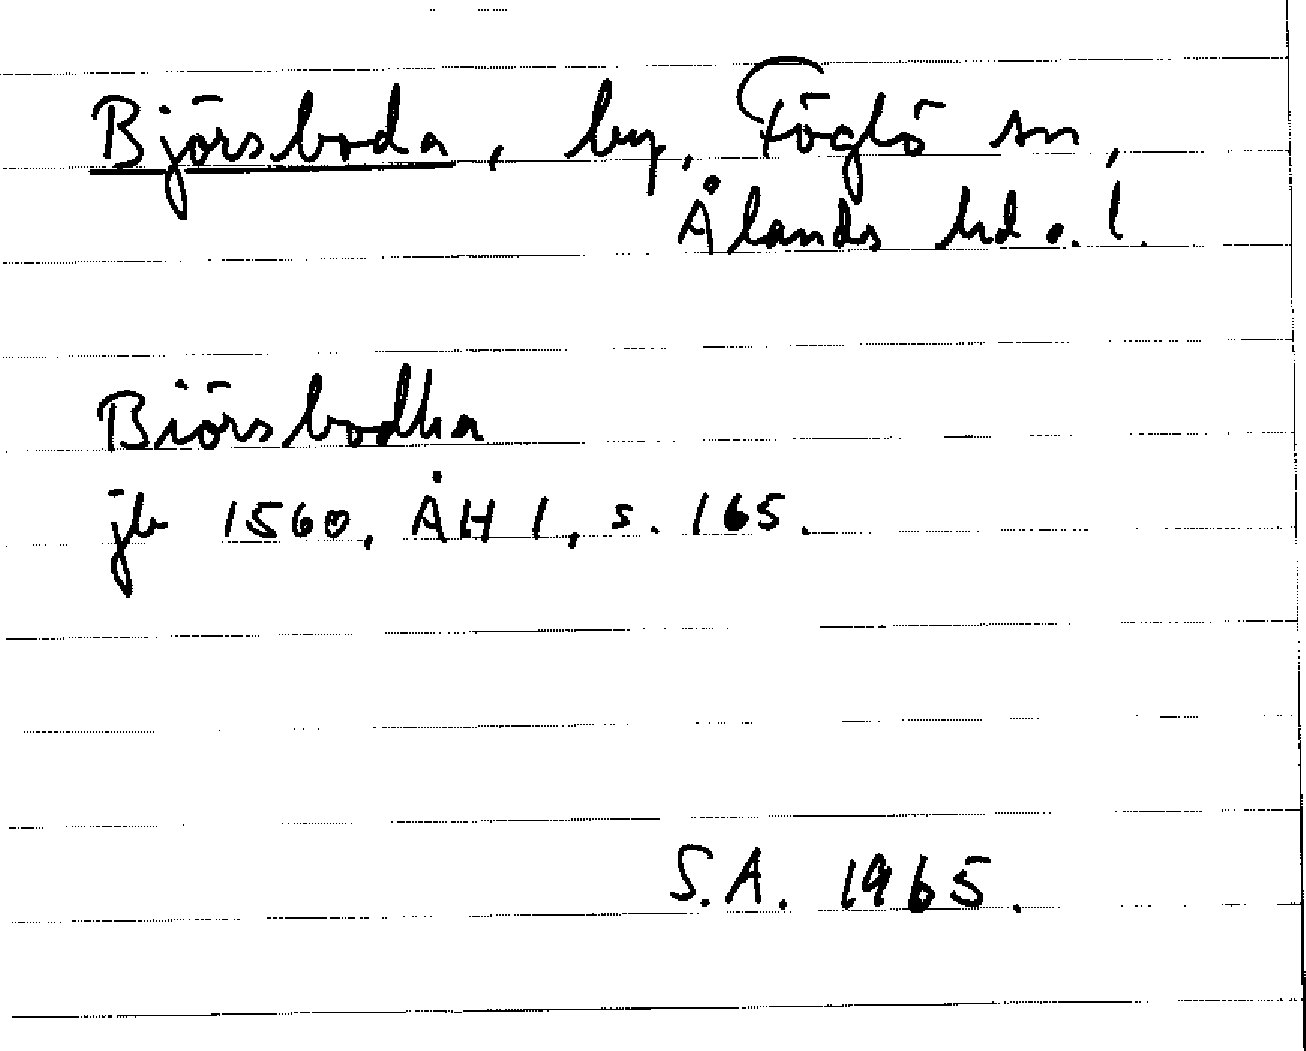 Björsboda, by, Föglö sn,
Ålands hd o. l.
Biörsbodha
jb 1560, ÅH 1, s. 165.
S.A. 1965.